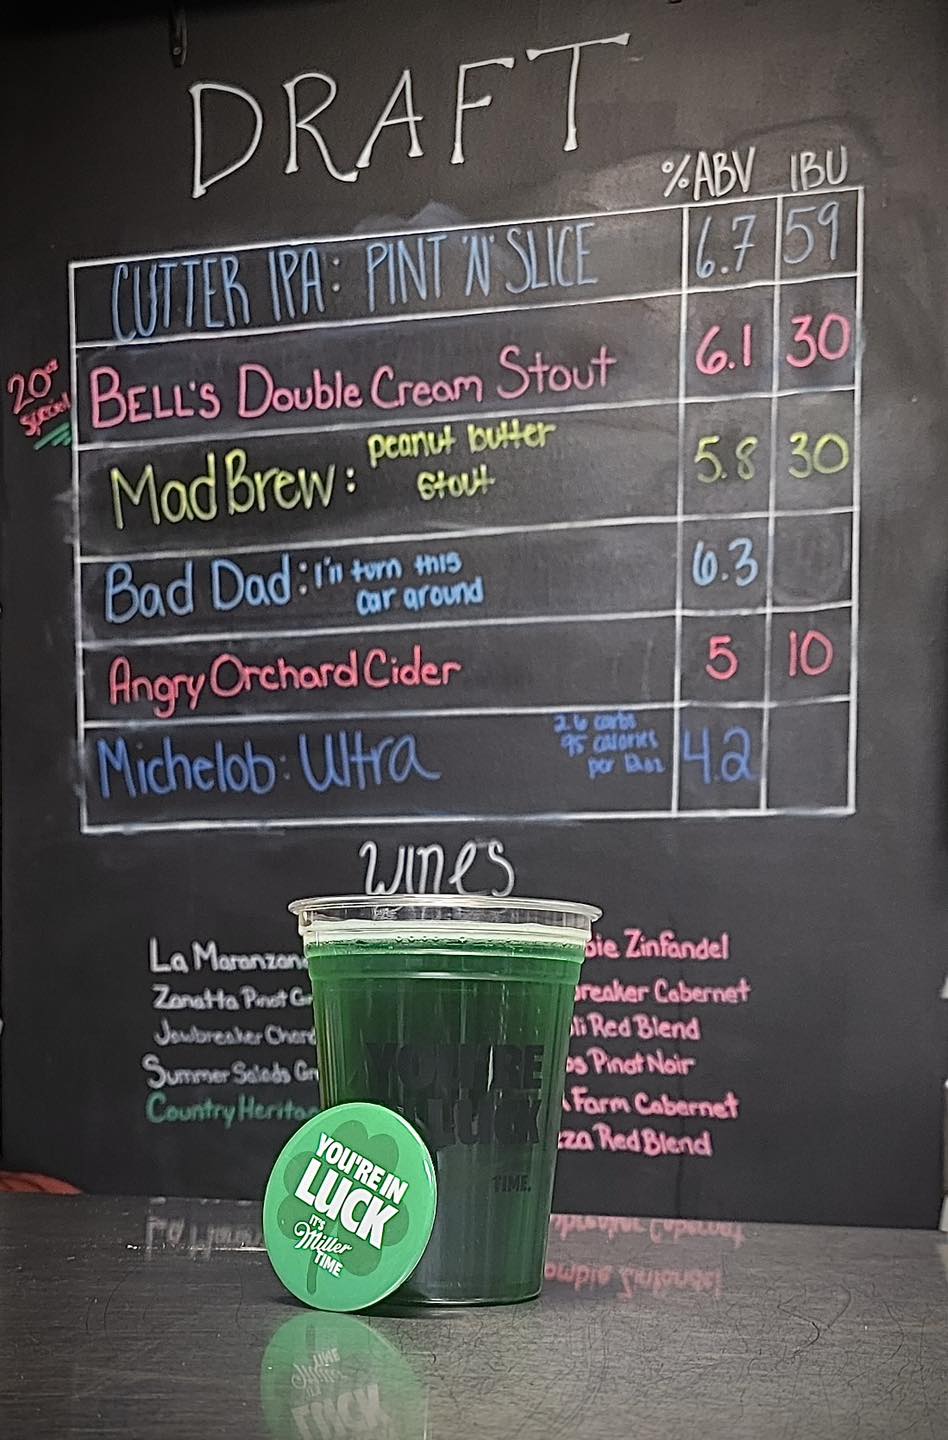 DRAFT
%ABV IBU
CUTTER IPA: PINT 'N' SLICE 6.7 59
20oz special
BELL'S Double Cream Stout 6.1 30
Mad Brew: peanut butter 5.8 30
stout
Bad Dad: I'll turn this 6.3
car around
Angry Orchard Cider 5 10
Michelob: Ultra 4.2
2.6 carbs
95 calories
per 12oz
WINES
La Maranzan
Zanatta Pinot G
Jawbreaker Char
Summer Salads Gr
Country Herita
bie Zinfandel
breaker Cabernet
li Red Blend
os Pinot Noir
Farm Cabernet
zza Red Blend
YOU'RE
LUCK
TIME.
YOU'RE IN
LUCK
IT'S
Miller
TIME